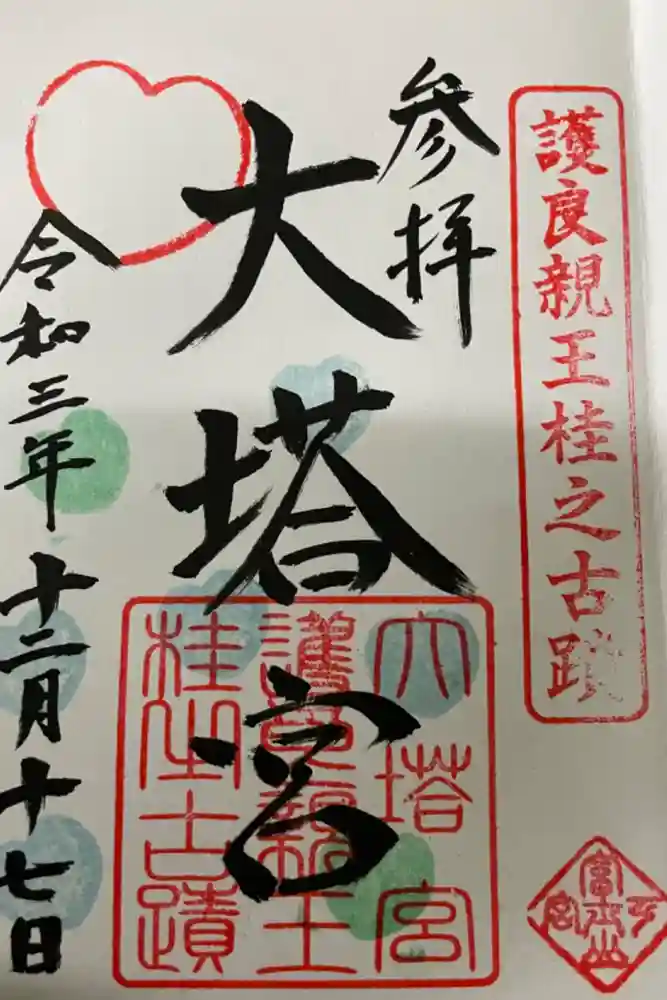 護良親王桂之古蹟
参拝
大塔宮
令和三年十二月十七日
大塔宮
護良親王
桂之古蹟